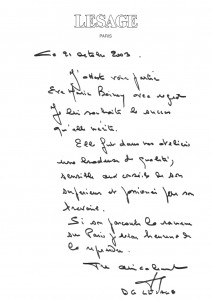 LESAGE
PARIS
Le 21 octobre 2003
J'atteste voir partir
avec regret
Je lui souhaite le succès
qu'elle mérite.
Elle fut dans nos ateliers
une brodeuse de qualité,
sensible aux conseils de son
supérieur et passionnée par son
travail.
Si son parcours la ramène
sur Paris je serai heureux de
la reprendre.
Très amicalement
LESAGE